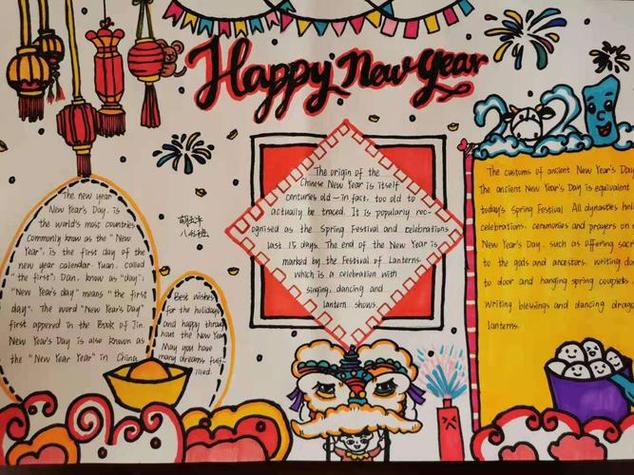 Happy New Year
2021
The new year
New Year's Day, is
the world's most countries
commonly know as the "New
Year", is the first day of the
new year calendar Yuan, called
"the first"; Dan, know as "day";
"New Year's day" means "the first
day". The word "New Year's Day"
first appered in the Book of Jin.
New Year's Day is also known as
the "New Year Year" in China
Best wishes
for the holidays
and happy through
out the New Year
May you have
many dreams fulfi
lled.
The origin of the
Chinese New Year is itself
centuries old - in fact, too old to
actually be traced. It is popularly rec-
ognised as the Spring Festival and celebrations
last 15 days. The end of the New Year is
marked by the Festival of Lanterns,
which is a celebration with
singing, dancing and
lantern shows.
The customs of ancient New Year's Day
The ancient New Year's Day is equivalent
today's Spring Festival. All dynasties hol
celebrations, ceremonies and prayers on
New Year's Day, such as offering sacr
to the gods and ancestors, writing do
to door and hanging spring couplets
writing blessings and dancing drago
lanterns.